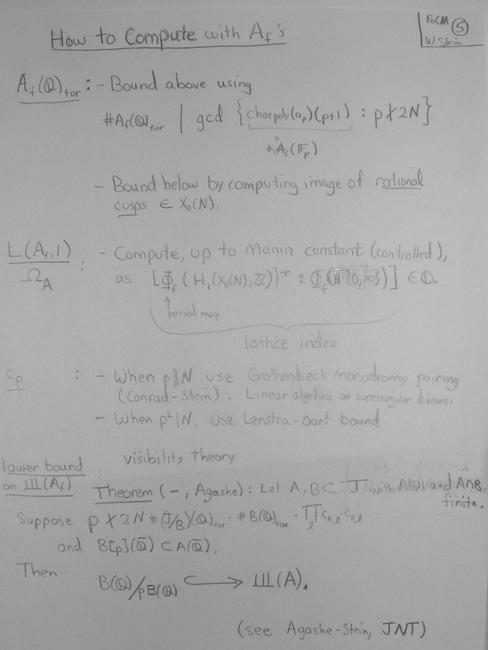 How to Compute with A_f's
FoCM ⑤
W Stein
A_f(Q)_tor : - Bound above using
#A_f(Q)_tor | gcd { charpoly(a_p)(p+1) : p∤2N }
#A_f(F_p)
- Bound below by computing image of rational
cusps ∈ X_0(N).
L(A_f,1)/Ω_A : - Compute, up to Manin constant (controlled),
as [Φ_f(H_1(X_0(N),Z))^+ : Φ_f( {0,∞})] ∈ Q
period map
lattice index
c_p : - When p||N use Grothendieck monodromy pairing
(Conrad-Stein). Linear algebra on supersingular divisors.
- When p²|N, use Lenstra-Oort bound.
visibility Theory
lower bound
on Ш(A_f) : Theorem (-, Agashe): Let A, B ⊂ J with A(Q) and A∩B
finite.
Suppose p∤2N #(J/B)(Q)_tor · #B(Q)_tor · ∏_ℓ c_{A,ℓ} c_{B,ℓ}
and B[p](Q̄) ⊂ A(Q̄).
Then
B(Q)/pB(Q) ↪ Ш(A).
(see Agashe-Stein, JNT)